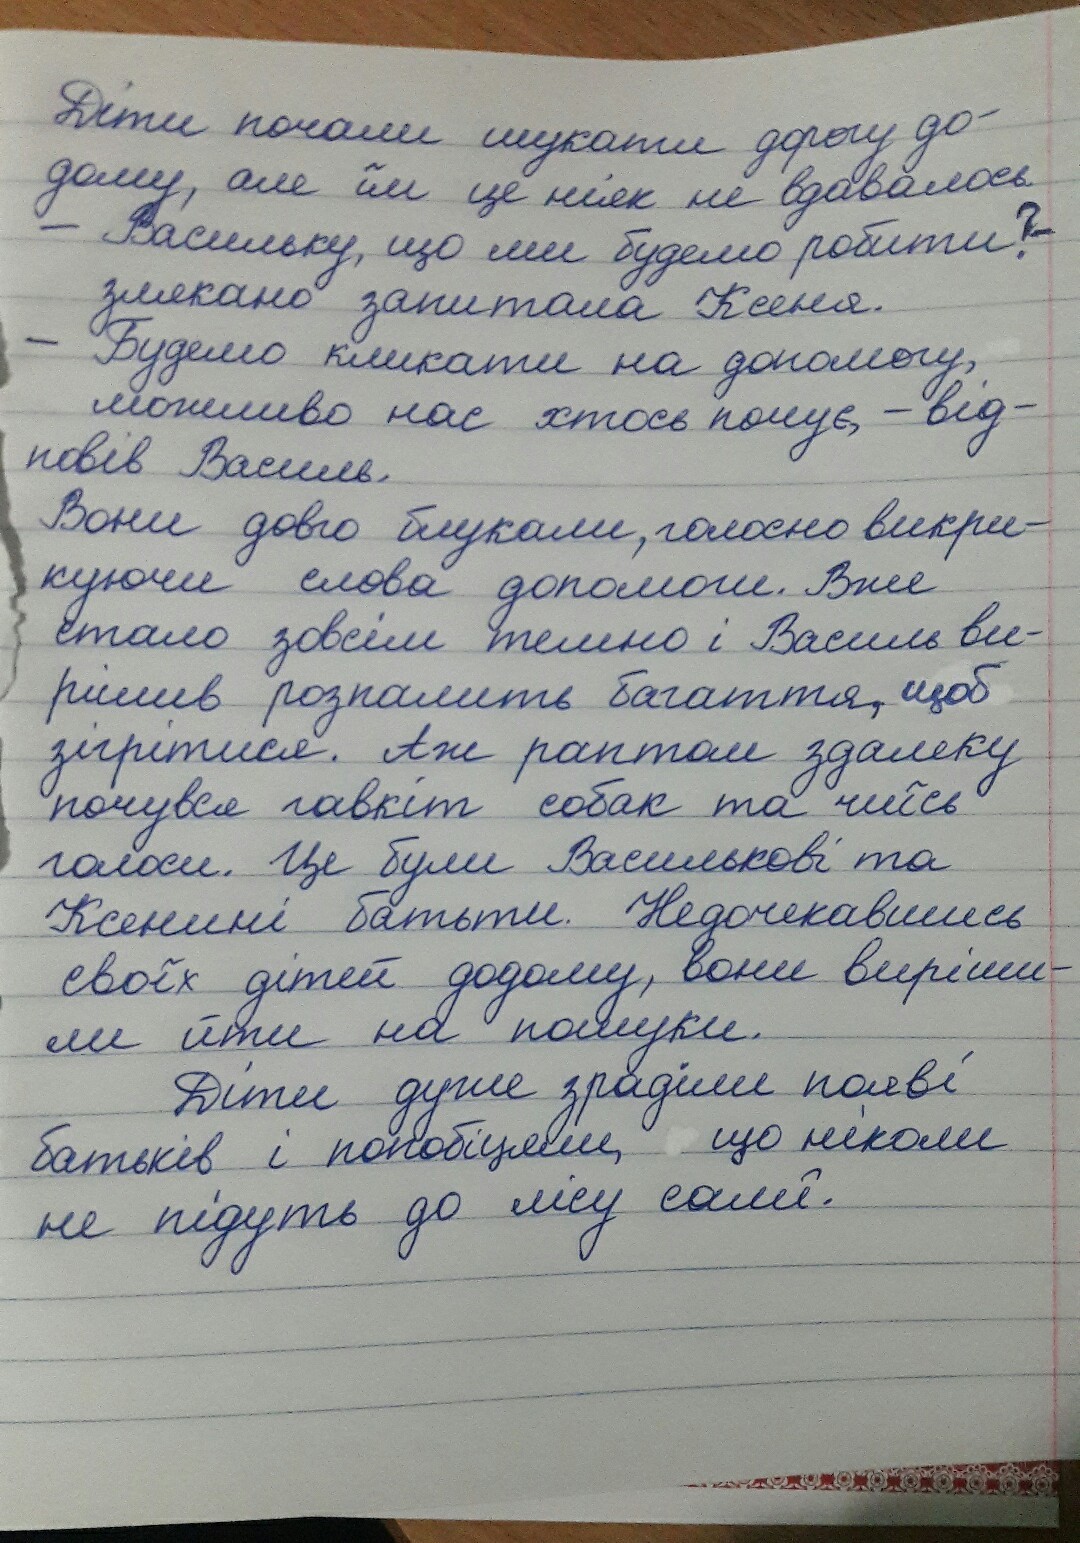 Діти почали шукати дорогу до-
дому, але їм це ніяк не вдавалось
– Васильку, що ми будемо робити? –
злякано запитала Ксеня.
– Будемо кликати на допомогу,
можливо нас хтось почує, – від-
повів Василь.
Вони довго блукали, голосно викри-
куючи слова допомоги. Вже
стало зовсім темно і Василь ви-
рішив розпалить багаття, щоб
зігрітися. Аж раптом здалеку
почувся гавкіт собак та чиїсь
голоси. Це були Василькові та
Ксенині батьти. Недочекавшись
своїх дітей додому, вони виріши-
ли йти на пошуки.
Діти дуже зраділи появі
батьків і попобіцяли, що ніколи
не підуть до лісу самі.